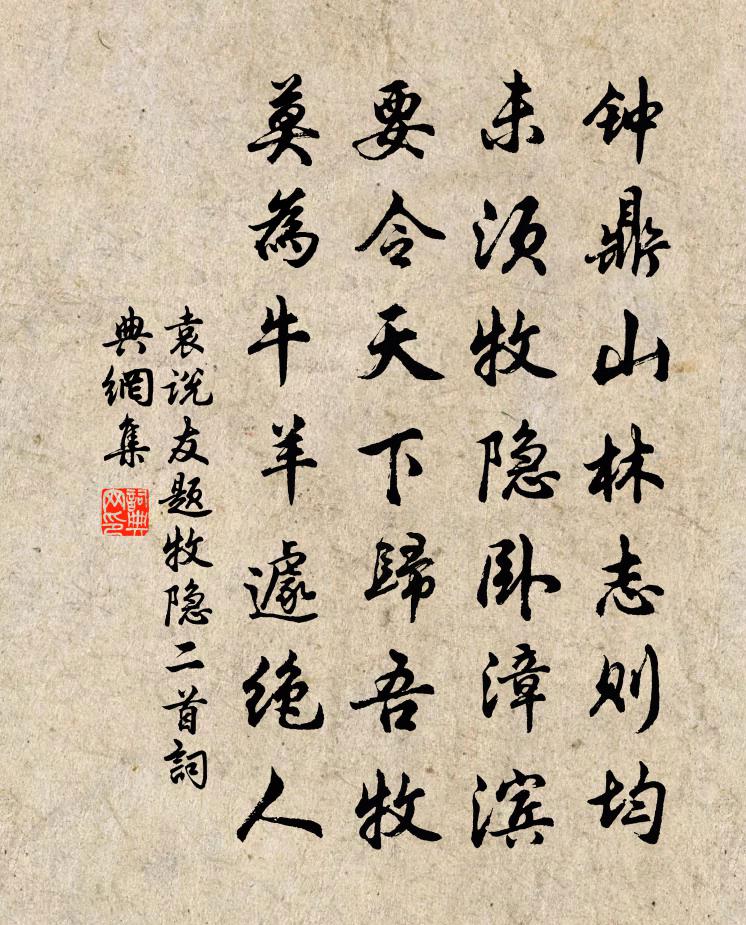 钟鼎山林志则均
未须牧隐卧漳滨
要令天下歸吾牧
莫為牛羊遽绝人
袁说友题牧隐二首詞
典網集
詞典網印